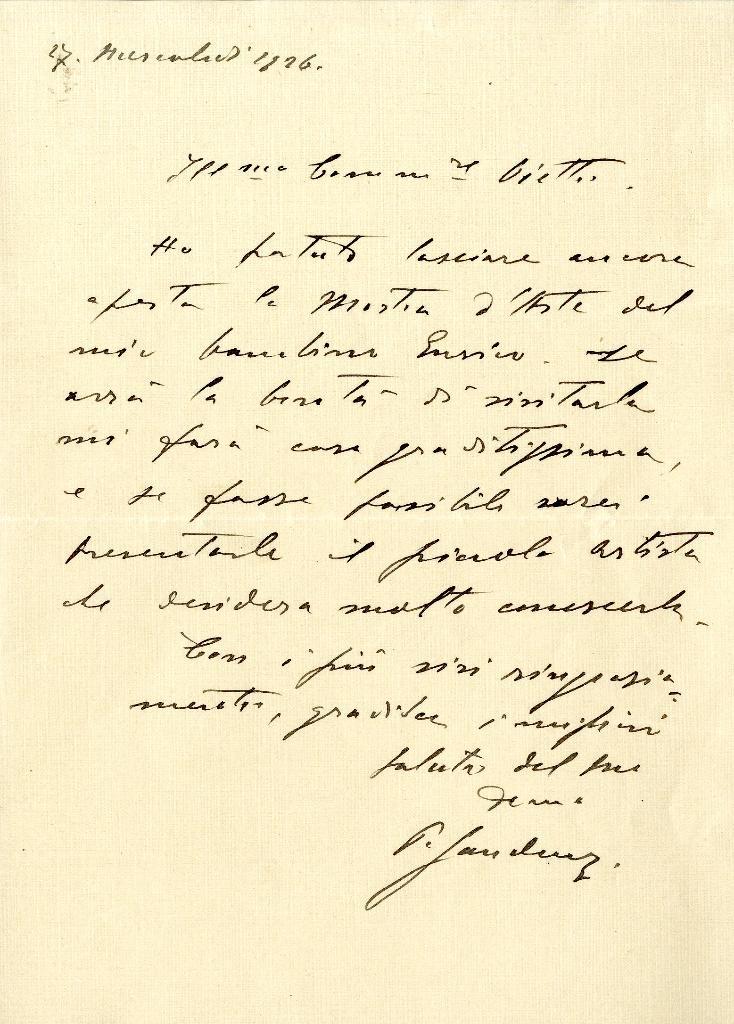 27. Mercoledì 1926.
Ill.mo Comm.re Vietti.
Ho potuto lasciare ancora
aperta la Mostra d'Arte del
mio bambino Enrico. Se
avrà la bontà di visitarla
mi farà cosa graditissima,
e se fosse possibile vorrei
presentarle il piccolo artista
che desidera molto conoscerla.
Con i più vivi ringrazia=
menti, gradisca i migliori
saluti del suo
P.